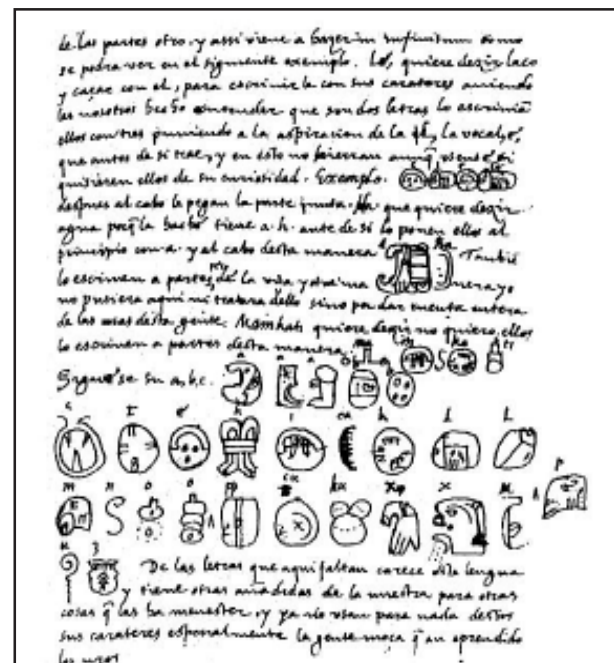 de las partes otro, y assi viene a hazer in infinitum como
se podra ver en el siguiente exemplo. Lé, quiere dezir laço
y caçar con el, para escrivirle con sus carateres aviendo
les nosotros hecho entender que son dos letras lo escrivia
ellos con tres puniendo a la aspiracion de la l la vocal é,
que antes de si trae, y en esto no hierran aunq usense, si
quisieren ellos de su curiosidad. Exemplo.
despues al cabo le pegan la parte junta. Ha que quiere dezir
agua porq la hache tiene a. h. ante de si lo ponen ellos al
principio con a. y al cabo desta manera Tambie
lo escriven a partes de la una y otra ma nera yo
no pusiera aqui ni tratara dello sino por dar cuenta entera
de las cosas desta gente. Mainkati quiere dezir no quiero, ellos
lo escriven a partes desta manera ma i n ka ti
Siguese su a, b, c. a a a b b
c t é h i ca k l l
m n o o p cu ku x x u p
u z De las letras que aqui faltan carece esta lengua
y tiene otras añadidas de la nuestra para otras
cosas q las ha menester, y ya no usan para nada destos
sus carateres especialmente la gente moça q an aprendido
los nros